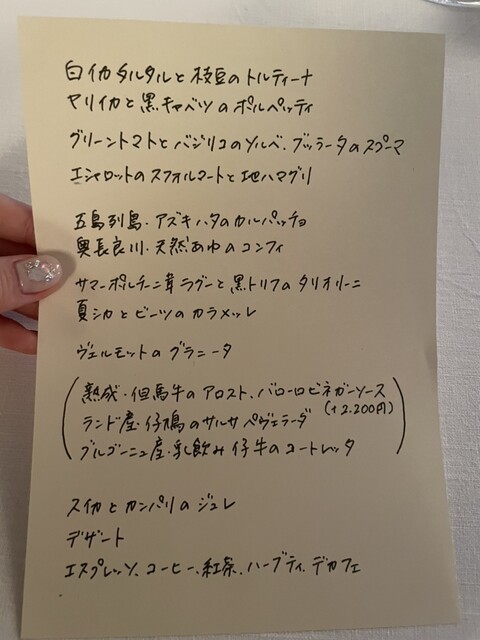 白イカタルタルと枝豆のトルティーナ
ヤリイカと黒キャベツのポルペッティ
グリーントマトとバジリコのソルベ、ブッラータのスプーマ
エシャロットのスフォルマートと地ハマグリ
五島列島・アズキハタのカルパッチョ
奥長良川・天然あゆのコンフィ
サマーポルチーニ茸ラグーと黒トリフのタリオリーニ
夏シカとビーツのカラメッレ
ヴェルモットのグラニータ
熟成・但馬牛のアロスト、バローロビネガーソース
ランド産・仔鳩のサルサペヴェラーダ (+2.200円)
ブルゴーニュ産・乳飲み仔牛のコートレッタ
スイカとカンパリのジュレ
デザート
エスプレッソ、コーヒー、紅茶、ハーブティ、デカフェ